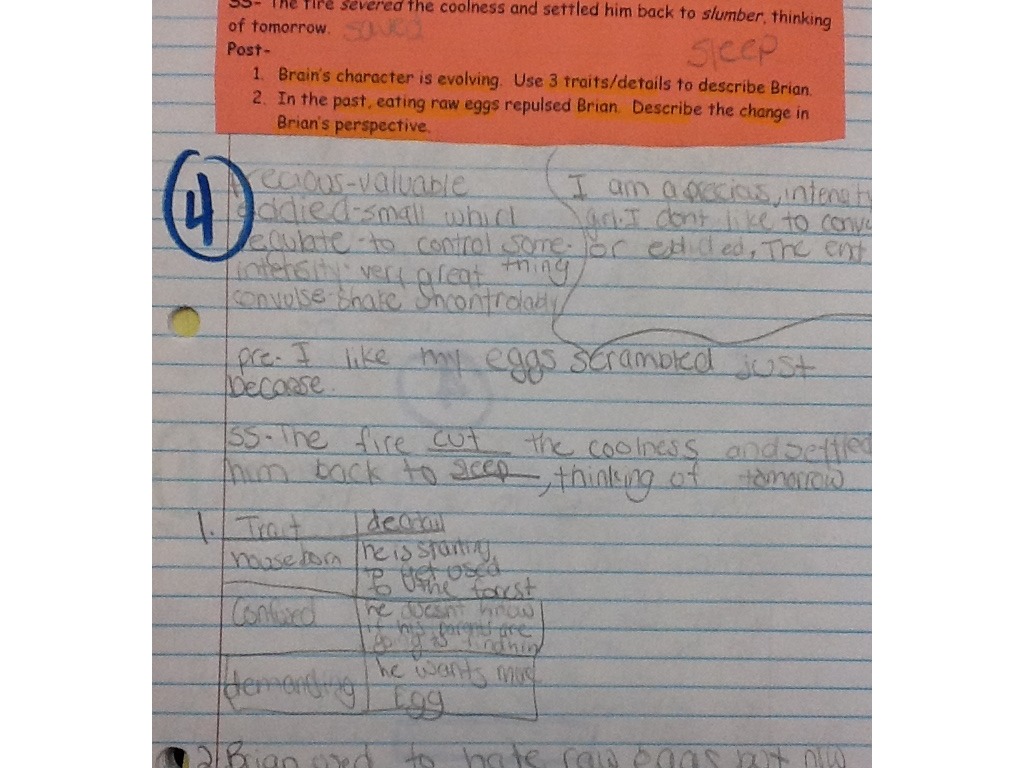 SS- The fire severed the coolness and settled him back to slumber, thinking
of tomorrow. saved
sleep
Post-
1. Brain's character is evolving. Use 3 traits/details to describe Brian.
2. In the past, eating raw eggs repulsed Brian. Describe the change in
Brian's perspective.
4
recious-valuable
eddied-small which
regulate-to control some-
thing
intensity: very great
convulse-shake uncontrolably
I am a precius, intensity
girl. I dont like to conv
or eddied. The ent
pre- I like my eggs scrambled just
becaose.
SS-The fire cut the coolness and settled
him back to sleep, thinking of tomorrow
1. Trait deatail
houseborn he is starting
to get used
to the forest
Confused he doesnt know
if his parents are
going to find him
demanding he wants more
Egg
2) Brian used to hate raw eggs but now